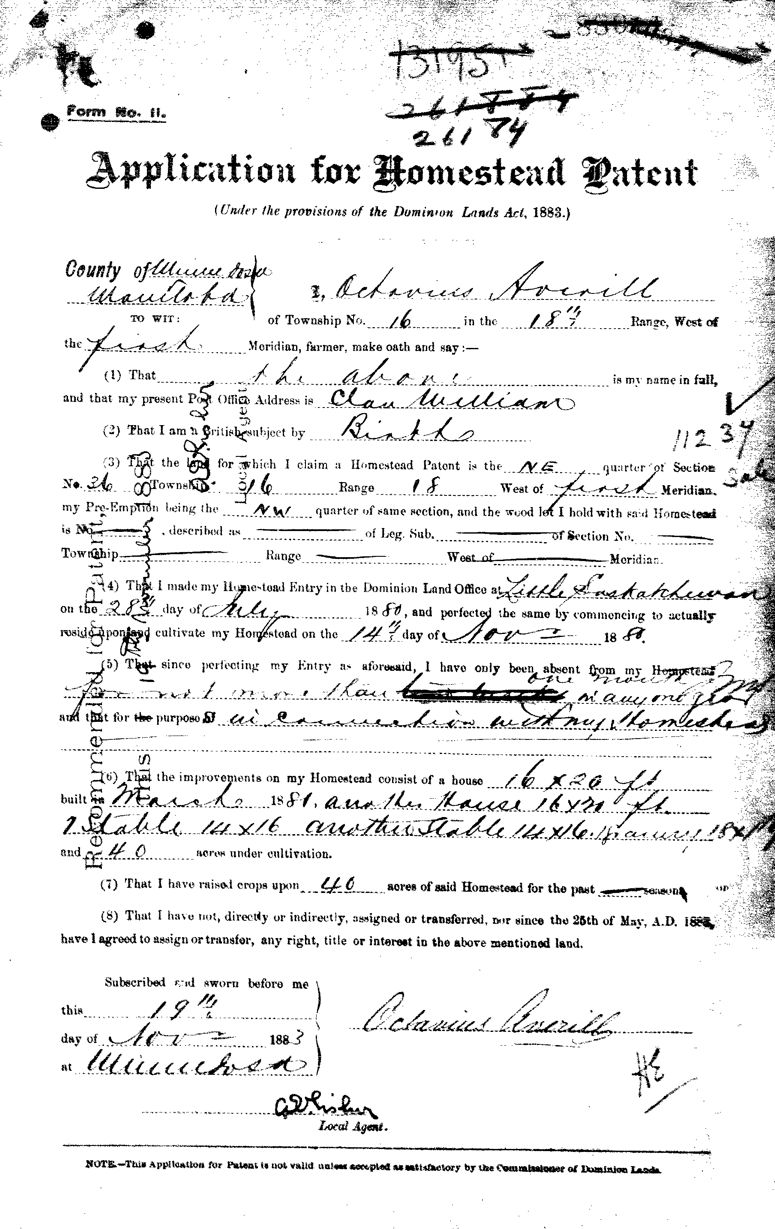 131951
261884
26184
Form No. 11.
Application for Homestead Patent
(Under the provisions of the Dominion Lands Act, 1883.)
County of Minnedosa
Manitoba
I, Octavius Averill
TO WIT: of Township No. 16 in the 18th Range, West of
the first Meridian, farmer, make oath and say:—
(1) That the above is my name in full,
and that my present Post Office Address is Clan William
(2) That I am a British subject by Birth
11234
(3) That the land for which I claim a Homestead Patent is the NE quarter of Section
Sale
No. 36 Township 16 Range 18 West of first Meridian.
my Pre-Emption being the NW quarter of same section, and the wood lot I hold with said Homestead
is No. , described as of Leg. Sub. of Section No.
Township Range West of Meridian.
(4) That I made my Homestead Entry in the Dominion Land Office at Little Saskatchewan
on the 28th day of July 1880, and perfected the same by commencing to actually
reside upon and cultivate my Homestead on the 14th day of Nov 1880.
(5) That since perfecting my Entry as aforesaid, I have only been absent from my Homestead
one month
for not more than in any one year
and that for the purpose S in connection with my Homestead
(6) That the improvements on my Homestead consist of a house 16 x 20 ft
built in March 1881, another House 16x20 ft.
1 Stable 14x16 another Stable 14x16. Granary 18x
and 40 acres under cultivation.
(7) That I have raised crops upon 40 acres of said Homestead for the past season
(8) That I have not, directly or indirectly, assigned or transferred, nor since the 25th of May, A.D. 1883,
have I agreed to assign or transfer, any right, title or interest in the above mentioned land.
Recommended for Patent,
this 19th November 1883
Local Agent
Subscribed and sworn before me
this 19th
day of Nov 1883
at Minnedosa
Octavius Averill
HE
Local Agent.
NOTE.—This Application for Patent is not valid unless accepted as satisfactory by the Commissioner of Dominion Lands.